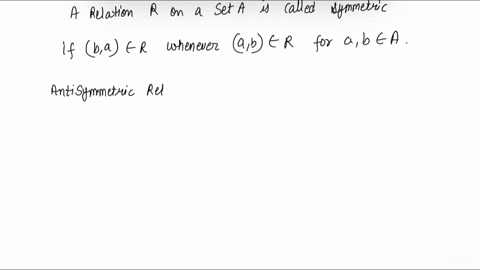 A Relation R on a Set A is called symmetric
if (b,a) ∈ R whenever (a,b) ∈ R for a, b ∈ A.
AntiSymmetric Rel